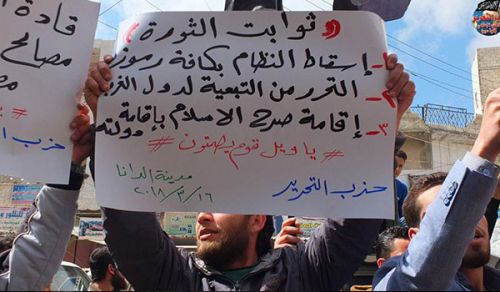 (( ثوابت الثورة ))
١- إسقاط النظام بكافة رموزه
٢- التحرر من التبعية لدول
٣- إقامة صرح الاسلام بإقامة دولته
# ياويل قوم يصمتون #
مدينة الدانا
٢٠١٨/٣/١٦
حزب التحرير
قادة
مصالح
حزب الت